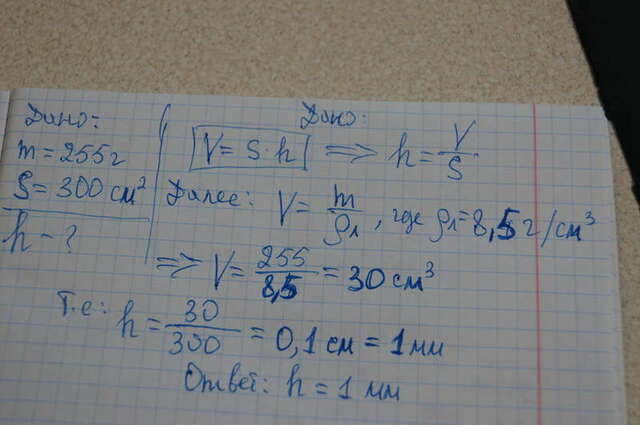 Дано:
m = 255 г
S = 300 см²
h - ?
Дано:
V = S · h ⇒ h = V/S
Далее: V = m/ρл, где ρл = 8,5 г/см³
⇒ V = 255/8,5 = 30 см³
Т.е: h = 30/300 = 0,1 см = 1 мм
Ответ: h = 1 мм